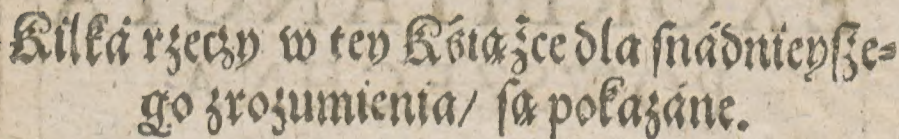 Kilká rzeczy w tey Kśiążce dla ſnádnieyſze⸗
go zrozumienia/ ſą pokazáne.